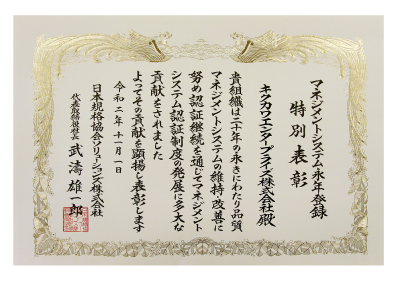 マネジメントシステム永年登録
特別表彰
キクカワエンタープライズ株式会社殿
貴組織は二十年の永きにわたり品質
マネジメントシステムの維持・改善に
努め認証継続を通じてマネジメント
システム認証制度の発展に多大な
貢献をされました
よってその貢献を顕揚し表彰します
令和二年十一月一日
日本規格協会ソリューションズ株式会社
代表取締役社長 武濤雄一郎